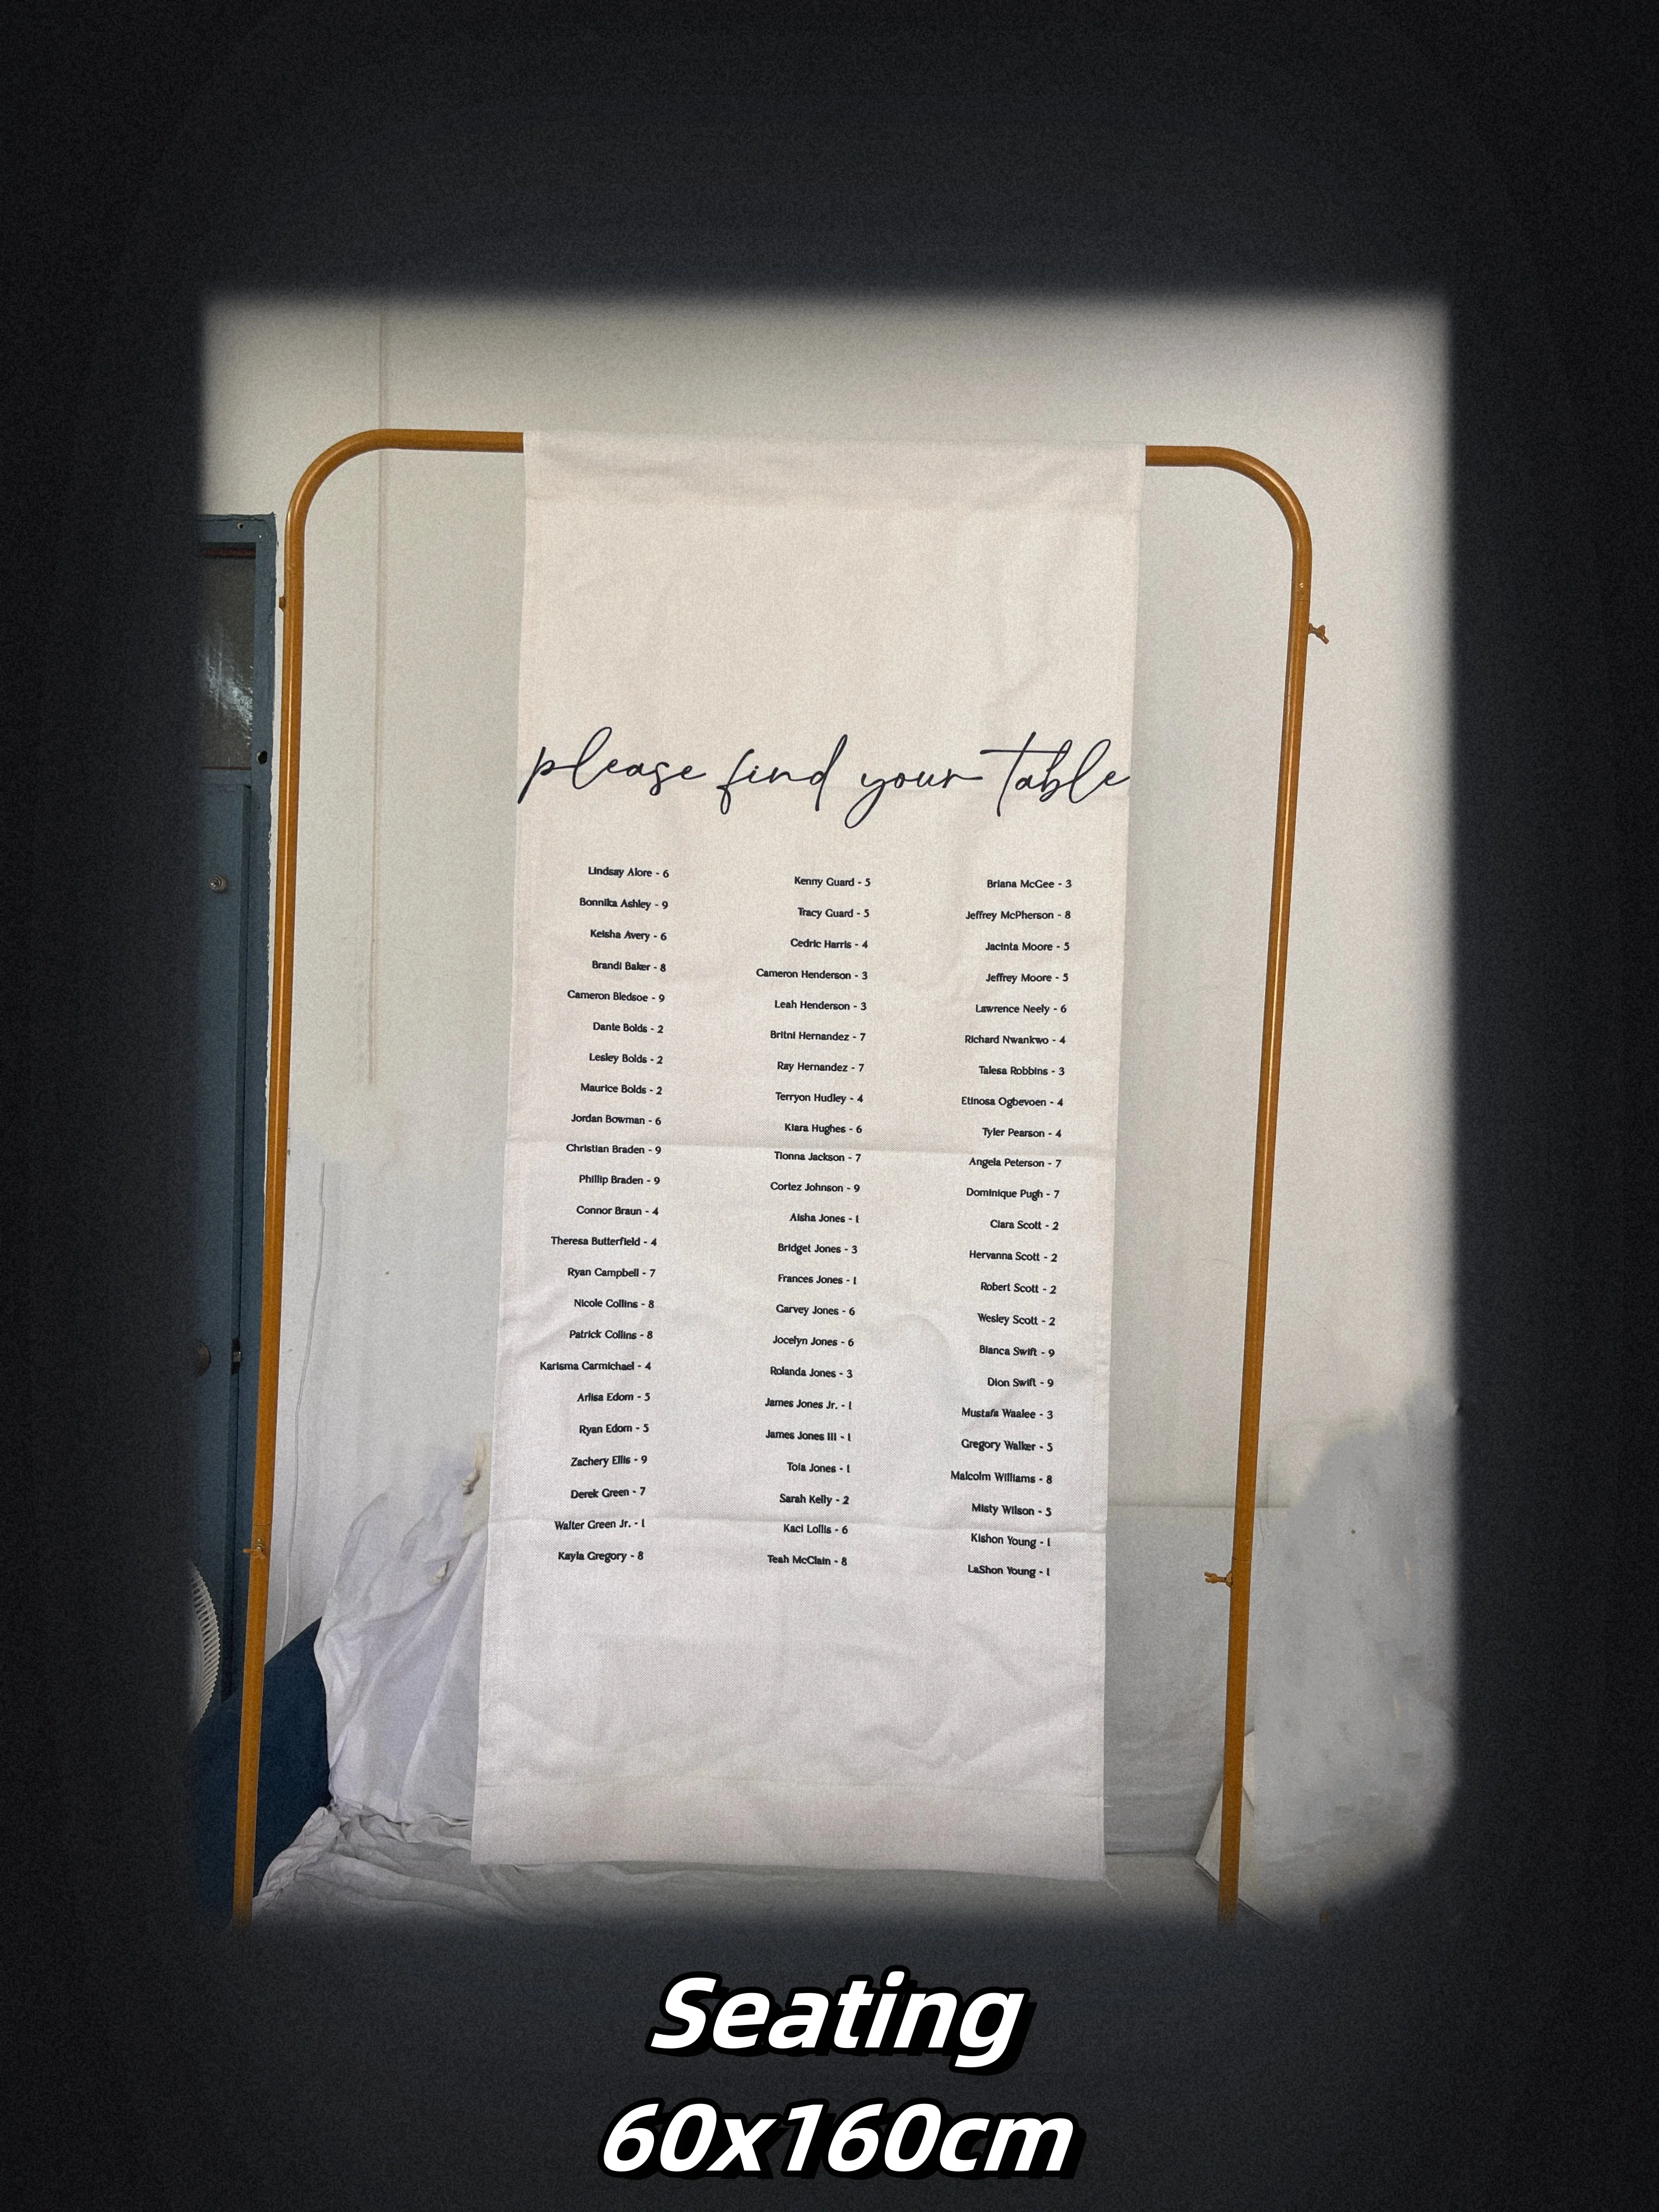 please find your table
Lindsay Alore - 6
Bonnika Ashley - 9
Keisha Avery - 6
Brandi Baker - 8
Cameron Bledsoe - 9
Dante Bolds - 2
Lesley Bolds - 2
Maurice Bolds - 2
Jordan Bowman - 6
Christian Braden - 9
Phillip Braden - 9
Connor Braun - 4
Theresa Butterfield - 4
Ryan Campbell - 7
Nicole Collins - 8
Patrick Collins - 8
Karisma Carmichael - 4
Arlisa Edom - 5
Ryan Edom - 5
Zachery Ellis - 9
Derek Green - 7
Walter Green Jr. - 1
Kayla Gregory - 8
Kenny Guard - 5
Tracy Guard - 5
Cedric Harris - 4
Cameron Henderson - 3
Leah Henderson - 3
Britni Hernandez - 7
Ray Hernandez - 7
Terryon Hudley - 4
Kiara Hughes - 6
Tionna Jackson - 7
Cortez Johnson - 9
Aisha Jones - 1
Bridget Jones - 3
Frances Jones - 1
Garvey Jones - 6
Jocelyn Jones - 6
Rolanda Jones - 3
James Jones Jr. - 1
James Jones III - 1
Tola Jones - 1
Sarah Kelly - 2
Kaci Lollis - 6
Teah McClain - 8
Briana McGee - 3
Jeffrey McPherson - 8
Jacinta Moore - 5
Jeffrey Moore - 5
Lawrence Neely - 6
Richard Nwankwo - 4
Talesa Robbins - 3
Etinosa Ogbevoen - 4
Tyler Pearson - 4
Angela Peterson - 7
Dominique Pugh - 7
Ciara Scott - 2
Hervanna Scott - 2
Robert Scott - 2
Wesley Scott - 2
Bianca Swift - 9
Dion Swift - 9
Mustafa Waalee - 3
Gregory Walker - 5
Malcolm Williams - 8
Misty Wilson - 5
Kishon Young - 1
LaShon Young - 1
Seating
60x160cm